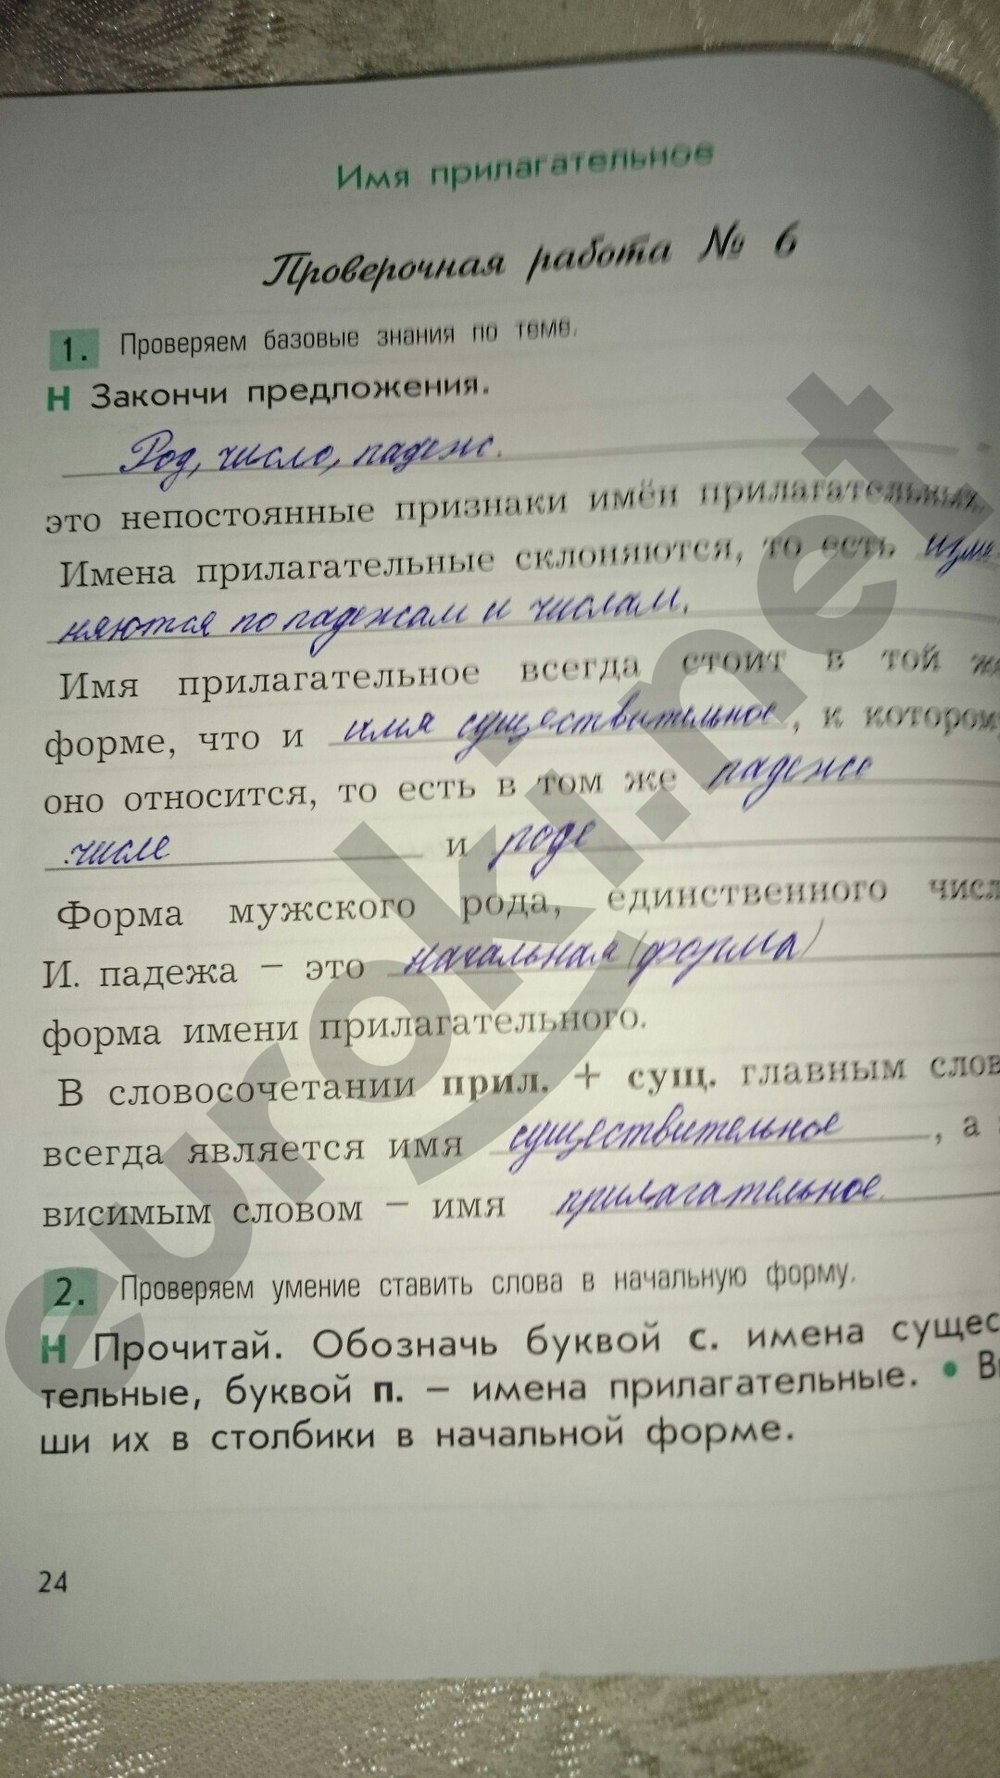 Имя прилагательное
Проверочная работа № 6
1. Проверяем базовые знания по теме.
Н Закончи предложения.
Род, число, падеж.
это непостоянные признаки имён прилагательных.
Имена прилагательные склоняются, то есть изме
няются по падежам и числам.
Имя прилагательное всегда стоит в той же
форме, что и имя существительное, к которому
оно относится, то есть в том же падеже
числе и роде
Форма мужского рода, единственного числ
И. падежа – это начальная (форма)
форма имени прилагательного.
В словосочетании прил. + сущ. главным слов
всегда является имя существительное, а
висимым словом – имя прилагательное.
2. Проверяем умение ставить слова в начальную форму.
Н Прочитай. Обозначь буквой с. имена сущес
тельные, буквой п. – имена прилагательные. • В
ши их в столбики в начальной форме.
24
euroki.net